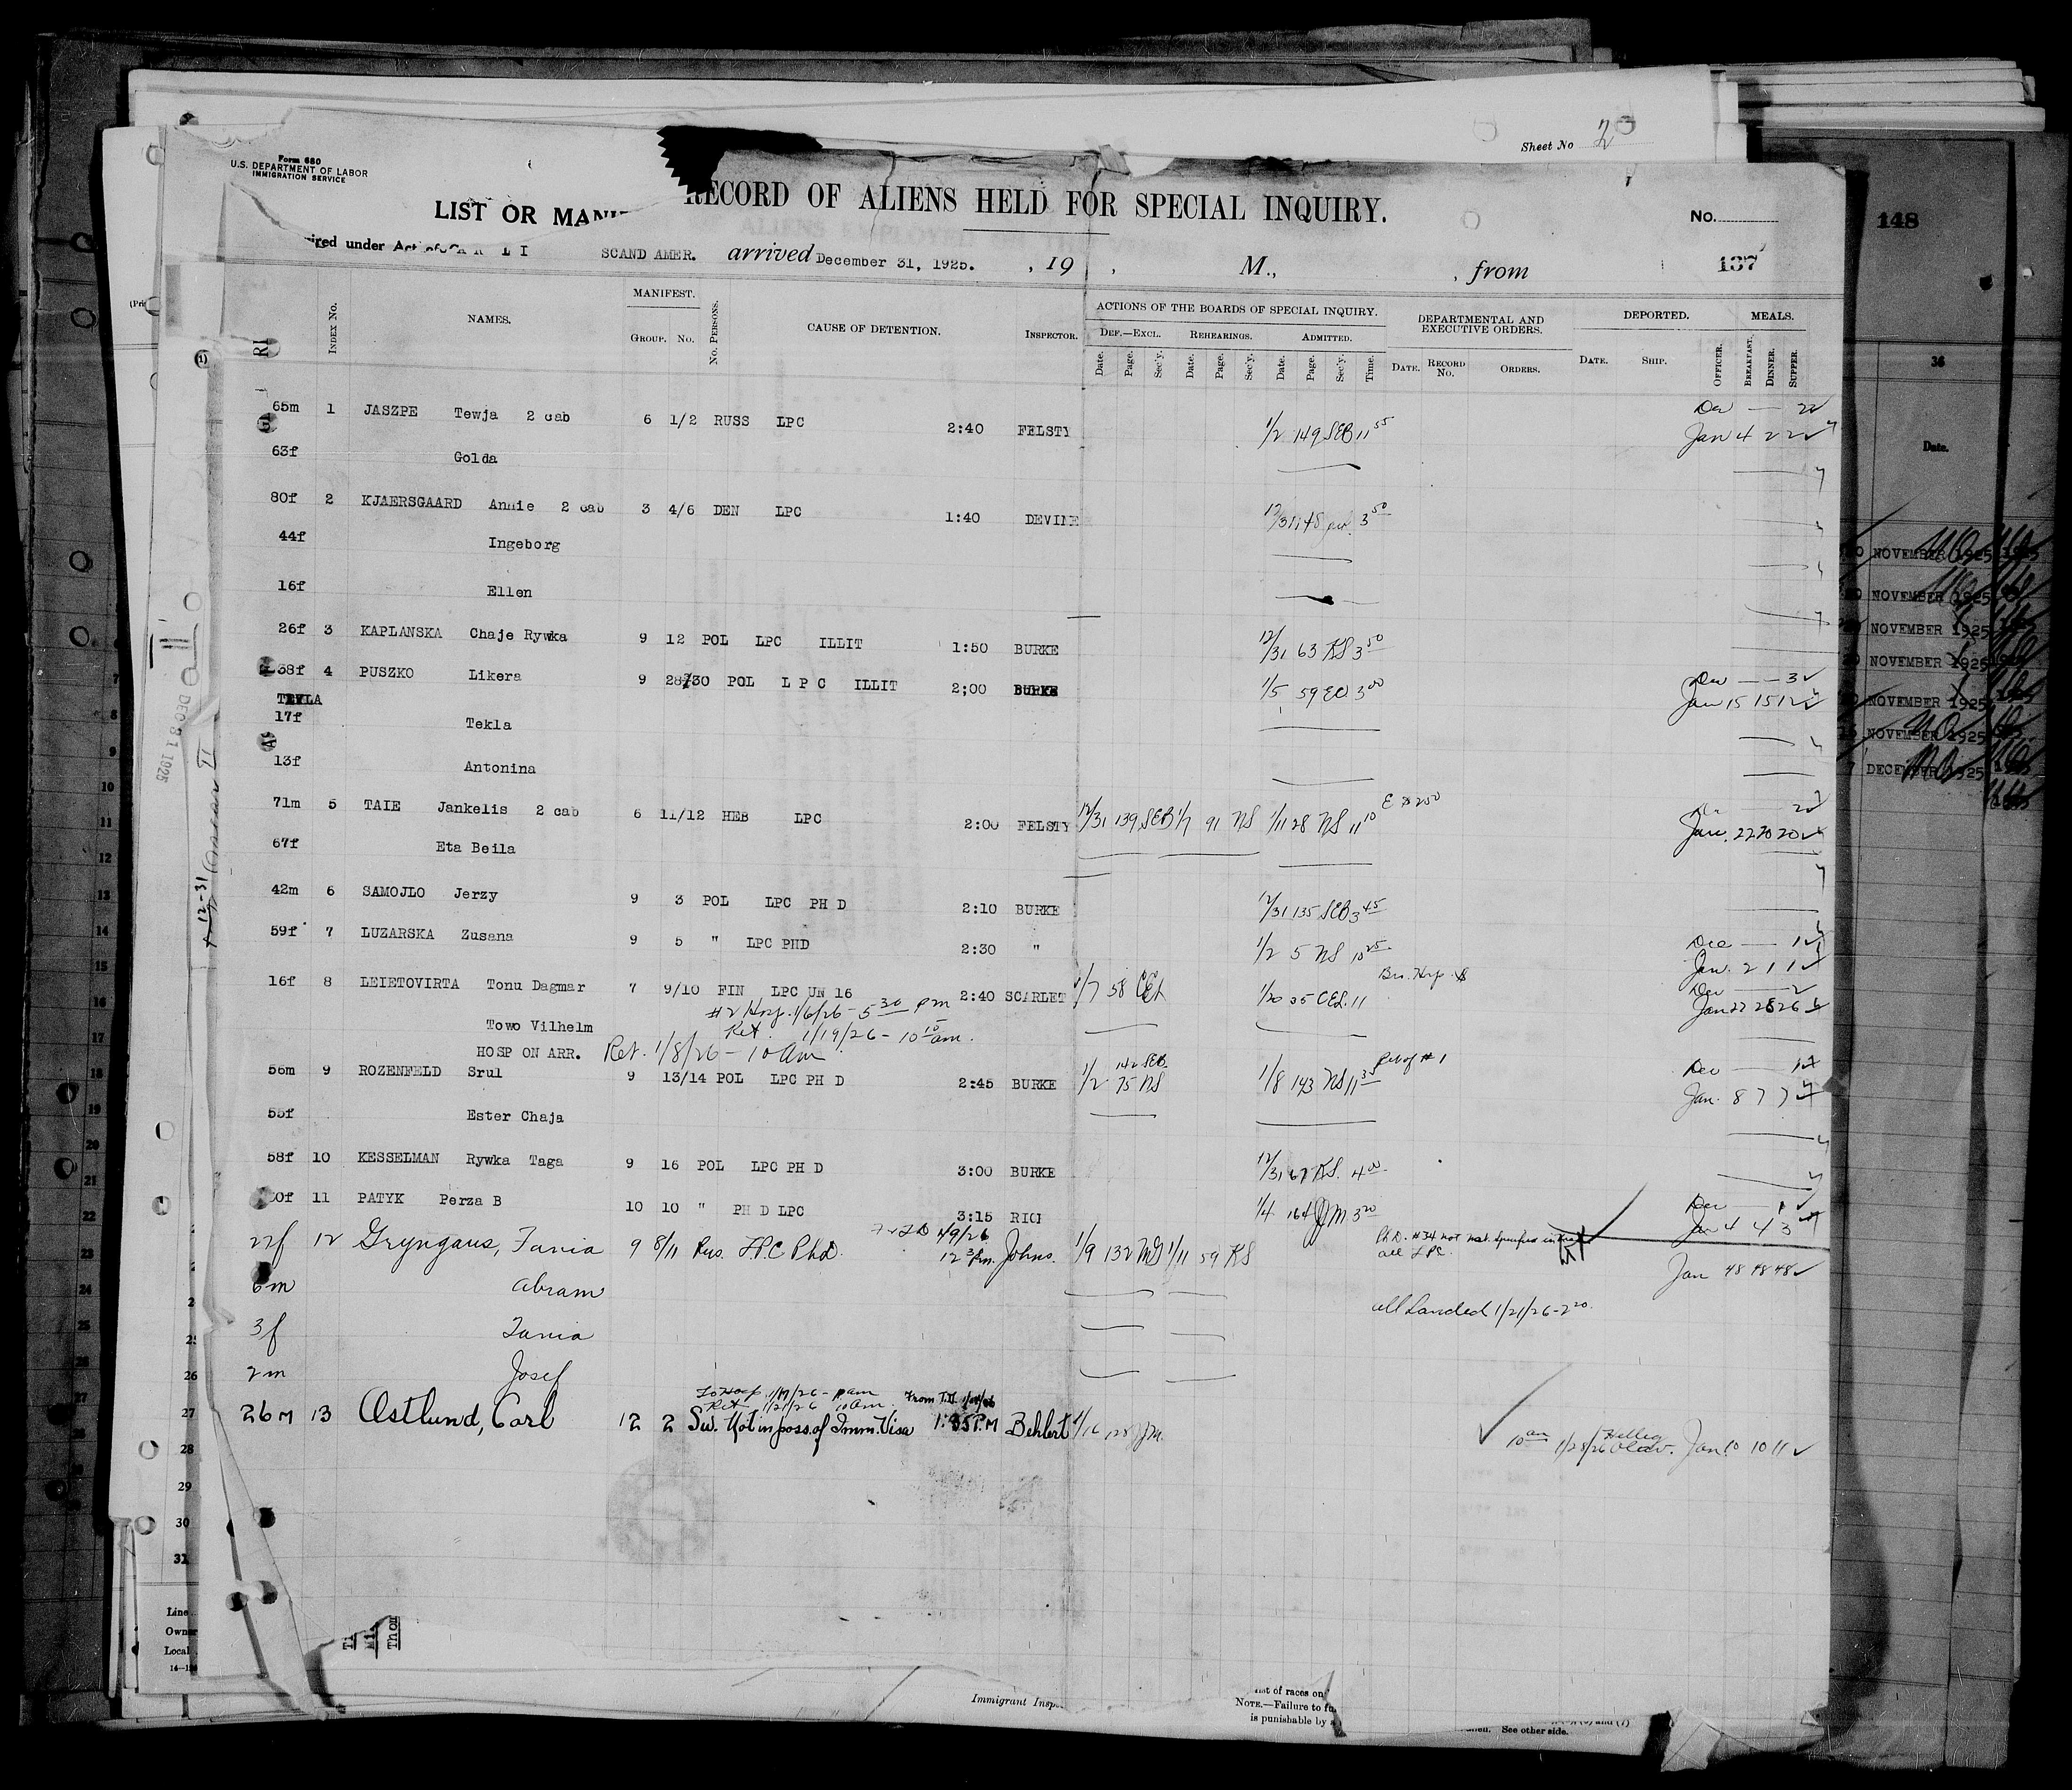 Sheet No 2
Form 680
U.S. DEPARTMENT OF LABOR
IMMIGRATION SERVICE
LIST OR MANI
RECORD OF ALIENS HELD FOR SPECIAL INQUIRY.
No.
148
ired under Act of
SCAND AMER. arrived December 31, 1925. , 19 , M., , from
137
Index No. NAMES. MANIFEST. Group. No. No. Persons. CAUSE OF DETENTION. Inspector.
ACTIONS OF THE BOARDS OF SPECIAL INQUIRY. DEPARTMENTAL AND EXECUTIVE ORDERS. DEPORTED. MEALS.
Def.—Excl. Rehearings. Admitted.
Date. Page. Sec'y. Date. Page. Sec'y. Date. Page. Sec'y. Time. Date. Record No. Orders. Date. Ship. Officer. Breakfast. Dinner. Supper.
36
Date.
65m 1 JASZPE Tewja 2 cab 6 1/2 RUSS LPC 2:40 FELSTY 1/2 149 SEB 11 55 Dec — 2
Jan 4 2 2
63f Golda
80f 2 KJAERSGAARD Annie 2 cab 3 4/6 DEN LPC 1:40 DEVINE 12/31 148 3 50
44f Ingeborg
16f Ellen
26f 3 KAPLANSKA Chaje Rywka 9 12 POL LPC ILLIT 1:50 BURKE 12/31 63 RS 3 50
38f 4 PUSZKO Likera 9 28/30 POL L P C ILLIT 2;00 BURKE 1/5 59 EO 3 00 Dec — — 3
Jan 15 15 12
TEKLA
17f Tekla
13f Antonina
71m 5 TAIE Jankelis 2 cab 6 11/12 HEB LPC 2:00 FELSTY 12/31 139 SEB 1/7 91 NS 1/11 28 NS 11 10 2
Jan. 22 20 20
67f Eta Beila
42m 6 SAMOJLO Jerzy 9 3 POL LPC PH D 2:10 BURKE 12/31 135 SEB 3 45
59f 7 LUZARSKA Zusana 9 5 " LPC PHD 2:30 " 1/2 5 NS 10 25 Dec — 1
Jan. 2 1 1
16f 8 LEIETOVIRTA Tonu Dagmar 7 9/10 FIN LPC UN 16 2:40 SCARLET 1/7 58 CEL 1/20 35 CEL 11 Dec — 2
Jan 27 28 26
#2 Hosp. 1/6/26 - 5 30 pm
Towo Vilhelm Ret. 1/19/26 - 10 15 am.
HOSP ON ARR. Ret. 1/8/26 - 10 am
56m 9 ROZENFELD Srul 9 13/14 POL LPC PH D 2:45 BURKE 142 SEB
1/2 75 NS 1/8 143 NS 11 35 Dec — 1
Jan. 8 7 7
55f Ester Chaja
58f 10 KESSELMAN Rywka Taga 9 16 POL LPC PH D 3:00 BURKE 12/31 67 RS. 4 00
30f 11 PATYK Perza B 10 10 " PH D LPC 3:15 RICI 1/4 164 JJM 3 20 Dec — 1
Jan 4 4 3
22f 12 Gryngaus, Fania 9 8/11 Rus. LPC PhD. 1/9/26
12 30 pm. Johns. 1/9 132 MG 1/11 59 RS Ph.D. #34 not
all LPC. Jan 48 48 48
6m Abram
all Landed 1/21/26 - 2 20.
3f Fania
2m Josef
To Hosp 1/19/26 - am From T.D.
Ret 1/21/26 10 am.
26m 13 Ostlund, Carl 12 2 Sw. Not in poss. of Imm. Visa 1:35 P.M Behlert 1/16 128 JJM. 10 am 1/28/26 Jan 10 10 11
NOVEMBER 1925
NOVEMBER 1925
NOVEMBER 1925
NOVEMBER 1925
NOVEMBER 1925
NOVEMBER 1925
DECEMBER 1925
DEC 31 1925
7
8
9
10
11
12
13
14
15
16
17
18
19
20
21
22
23
24
25
26
27
28
29
30
31
Line
Owner
Local
Immigrant Insp
list of races on
NOTE.—Failure to fu
is punishable by a
See other side.